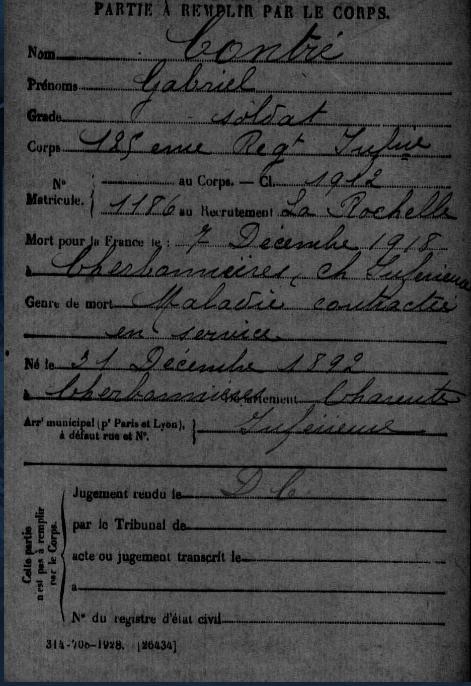 PARTIE À REMPLIR PAR LE CORPS.
Nom Contré
Prénoms Gabriel
Grade soldat
Corps 125 eme Regt Infrie
N° Matricule. { au Corps. — Cl. 1912
1186 au Recrutement La Rochelle
Mort pour la France le : 7 Décembre 1918
à Cherbonnières, ch Inférieure
Genre de mort Maladie contractée
en service
Né le 31 Décembre 1892
à Cherbonnières Département Charente
Arrt municipal (pr Paris et Lyon), à défaut rue et N°. } Inférieure
Cette partie n'est pas à remplir par le Corps.
Jugement rendu le D C
par le Tribunal de
acte ou jugement transcrit le
à
N° du registre d'état civil
314-708-1928. [26434]